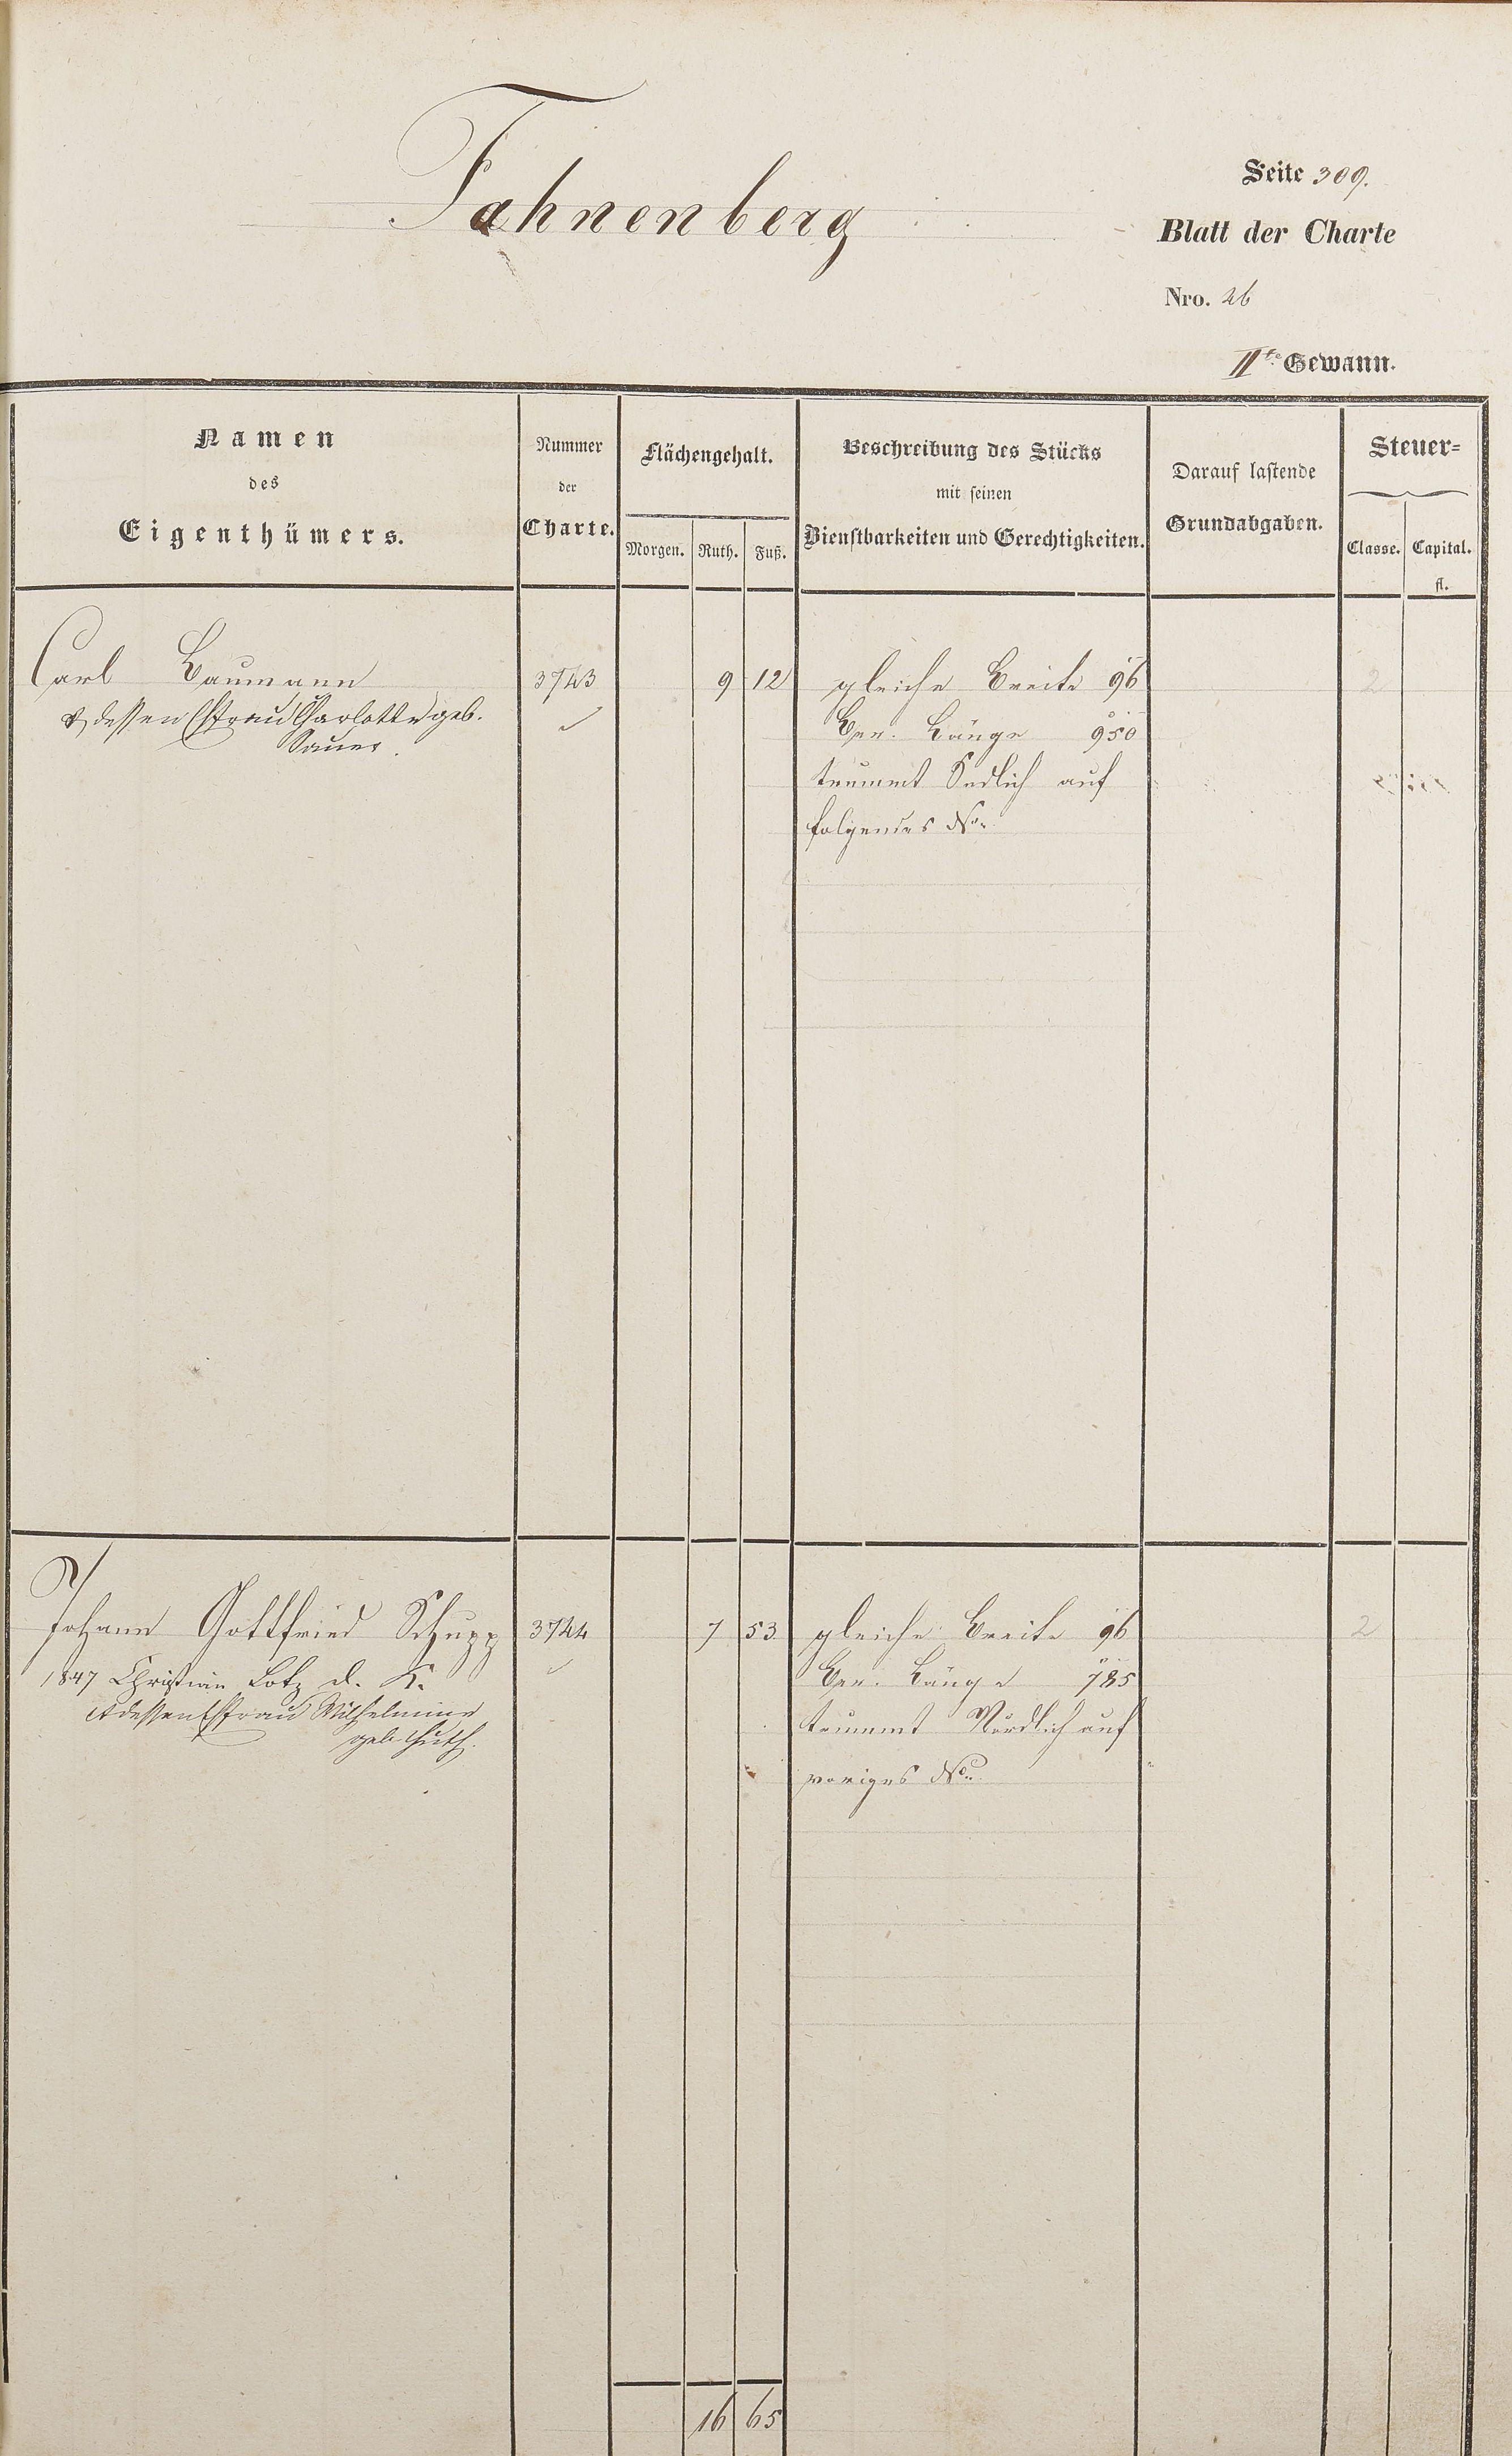 Fahnenberg
Seite 309.
Blatt der Charte
Nro. 26
IIte Gewann.
Namen
des
Eigenthümers.
Nummer
der
Charte.
Flächengehalt.
Morgen. Ruth. Fuß.
Beschreibung des Stücks
mit seinen
Dienstbarkeiten und Gerechtigkeiten.
Darauf lastende
Grundabgaben.
Steuer=
Classe. Capital.
fl.
Carl Baumann 3743 9 12 gleiche Breite 96 2
& dessen Ehfrau Charlotte geb.
Sauer.
Ger. Länge 950
trummt Sudlich auf
folgendes No.
Johann Gottfried Schupp 3744 7 53 gleiche Breite 96 2
1847 Christian Lotz d. K. Ger. Länge 785
& dessen Ehfrau Wilhelmine trummt Nördlich auf
geb. Huth.
voriges No.
16 65